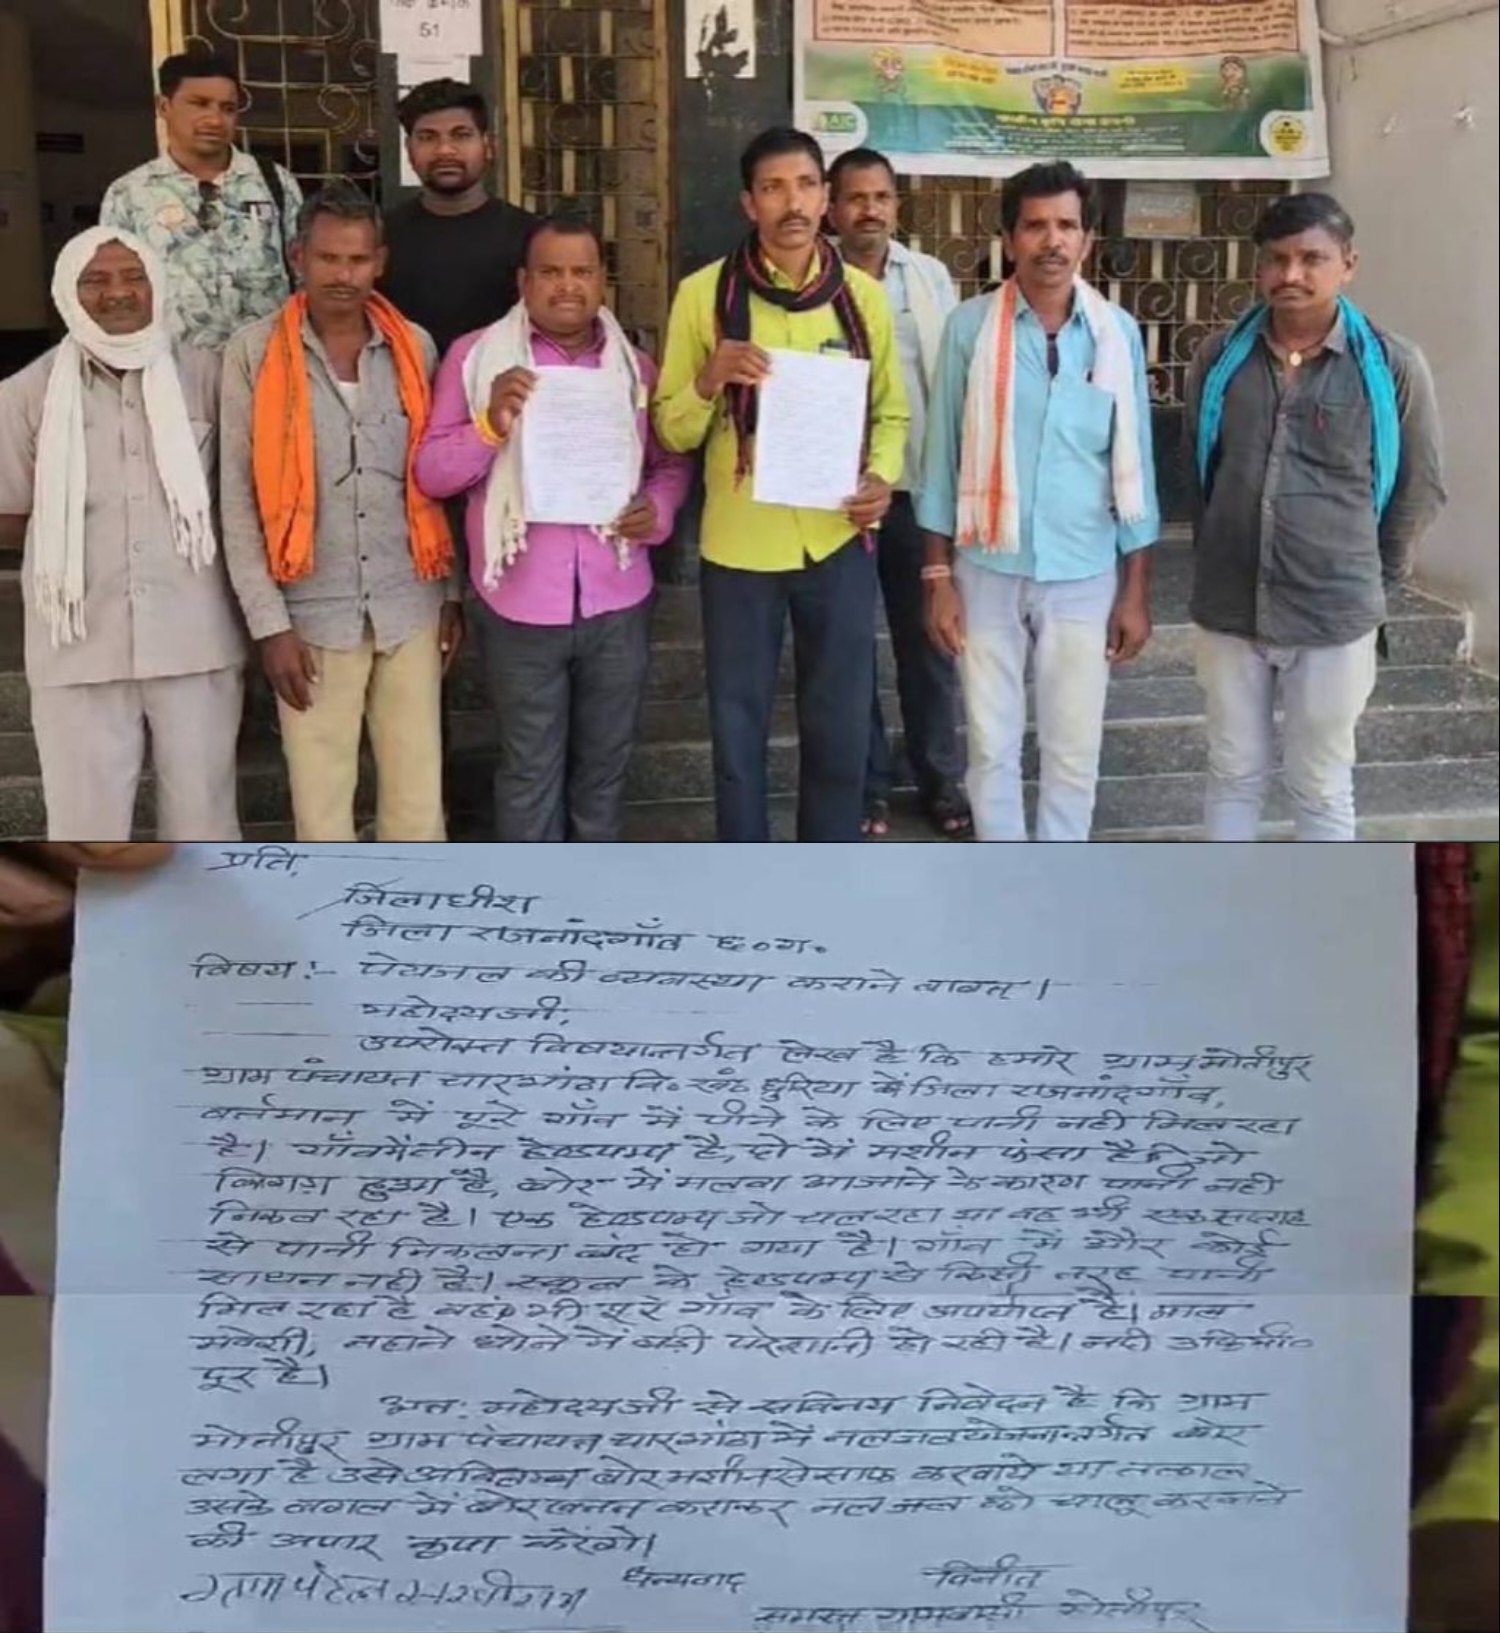 51
AIC
प्रति,
जिलाधीश
जिला राजनांदगाँव छ०ग०
विषय:- पेयजल की व्यवस्था कराने बावत्।
महोदयजी,
उपरोक्त विषयान्तर्गत लेख है कि हमारे ग्राम मोतीपुर
ग्राम पंचायत चारभांठा वि०खंड छुरिया जिला राजनांदगाँव,
वर्तमान में पूरे गाँव में पीने के लिए पानी नही मिल रहा
है। गाँव में तीन हेण्डपम्प है, दो में मशीन फंसा है जो
बिगड़ा हुआ है, बोर में मलवा आजाने के कारण पानी नही
निकल रहा है। एक हेण्डपम्प जो चल रहा था वह भी एक सप्ताह
से पानी निकलना बंद हो गया है। गाँव में और कोई
साधन नही है। स्कूल के हेण्डपम्प से किसी तरह पानी
मिल रहा है वहां भी पूरे गाँव के लिए अपर्याप्त है। माल
मवेशी, नहाने धोने में बड़ी परेशानी हो रही है। नदी 3 कि.मी०
दूर है।
अतः महोदयजी से सविनय निवेदन है कि ग्राम
मोतीपुर ग्राम पंचायत चारभांठा में नलजल योजनान्तर्गत बोर
लगा है उसे अविलम्ब बोर मशीन से साफ करवाये या तत्काल
उसके बगल में बोर खनन कराकर नल जल को चालू करवाने
की अपार कृपा करेंगे।
धन्यवाद विनीत
पटेल समस्त ग्रामवासी मोतीपुर